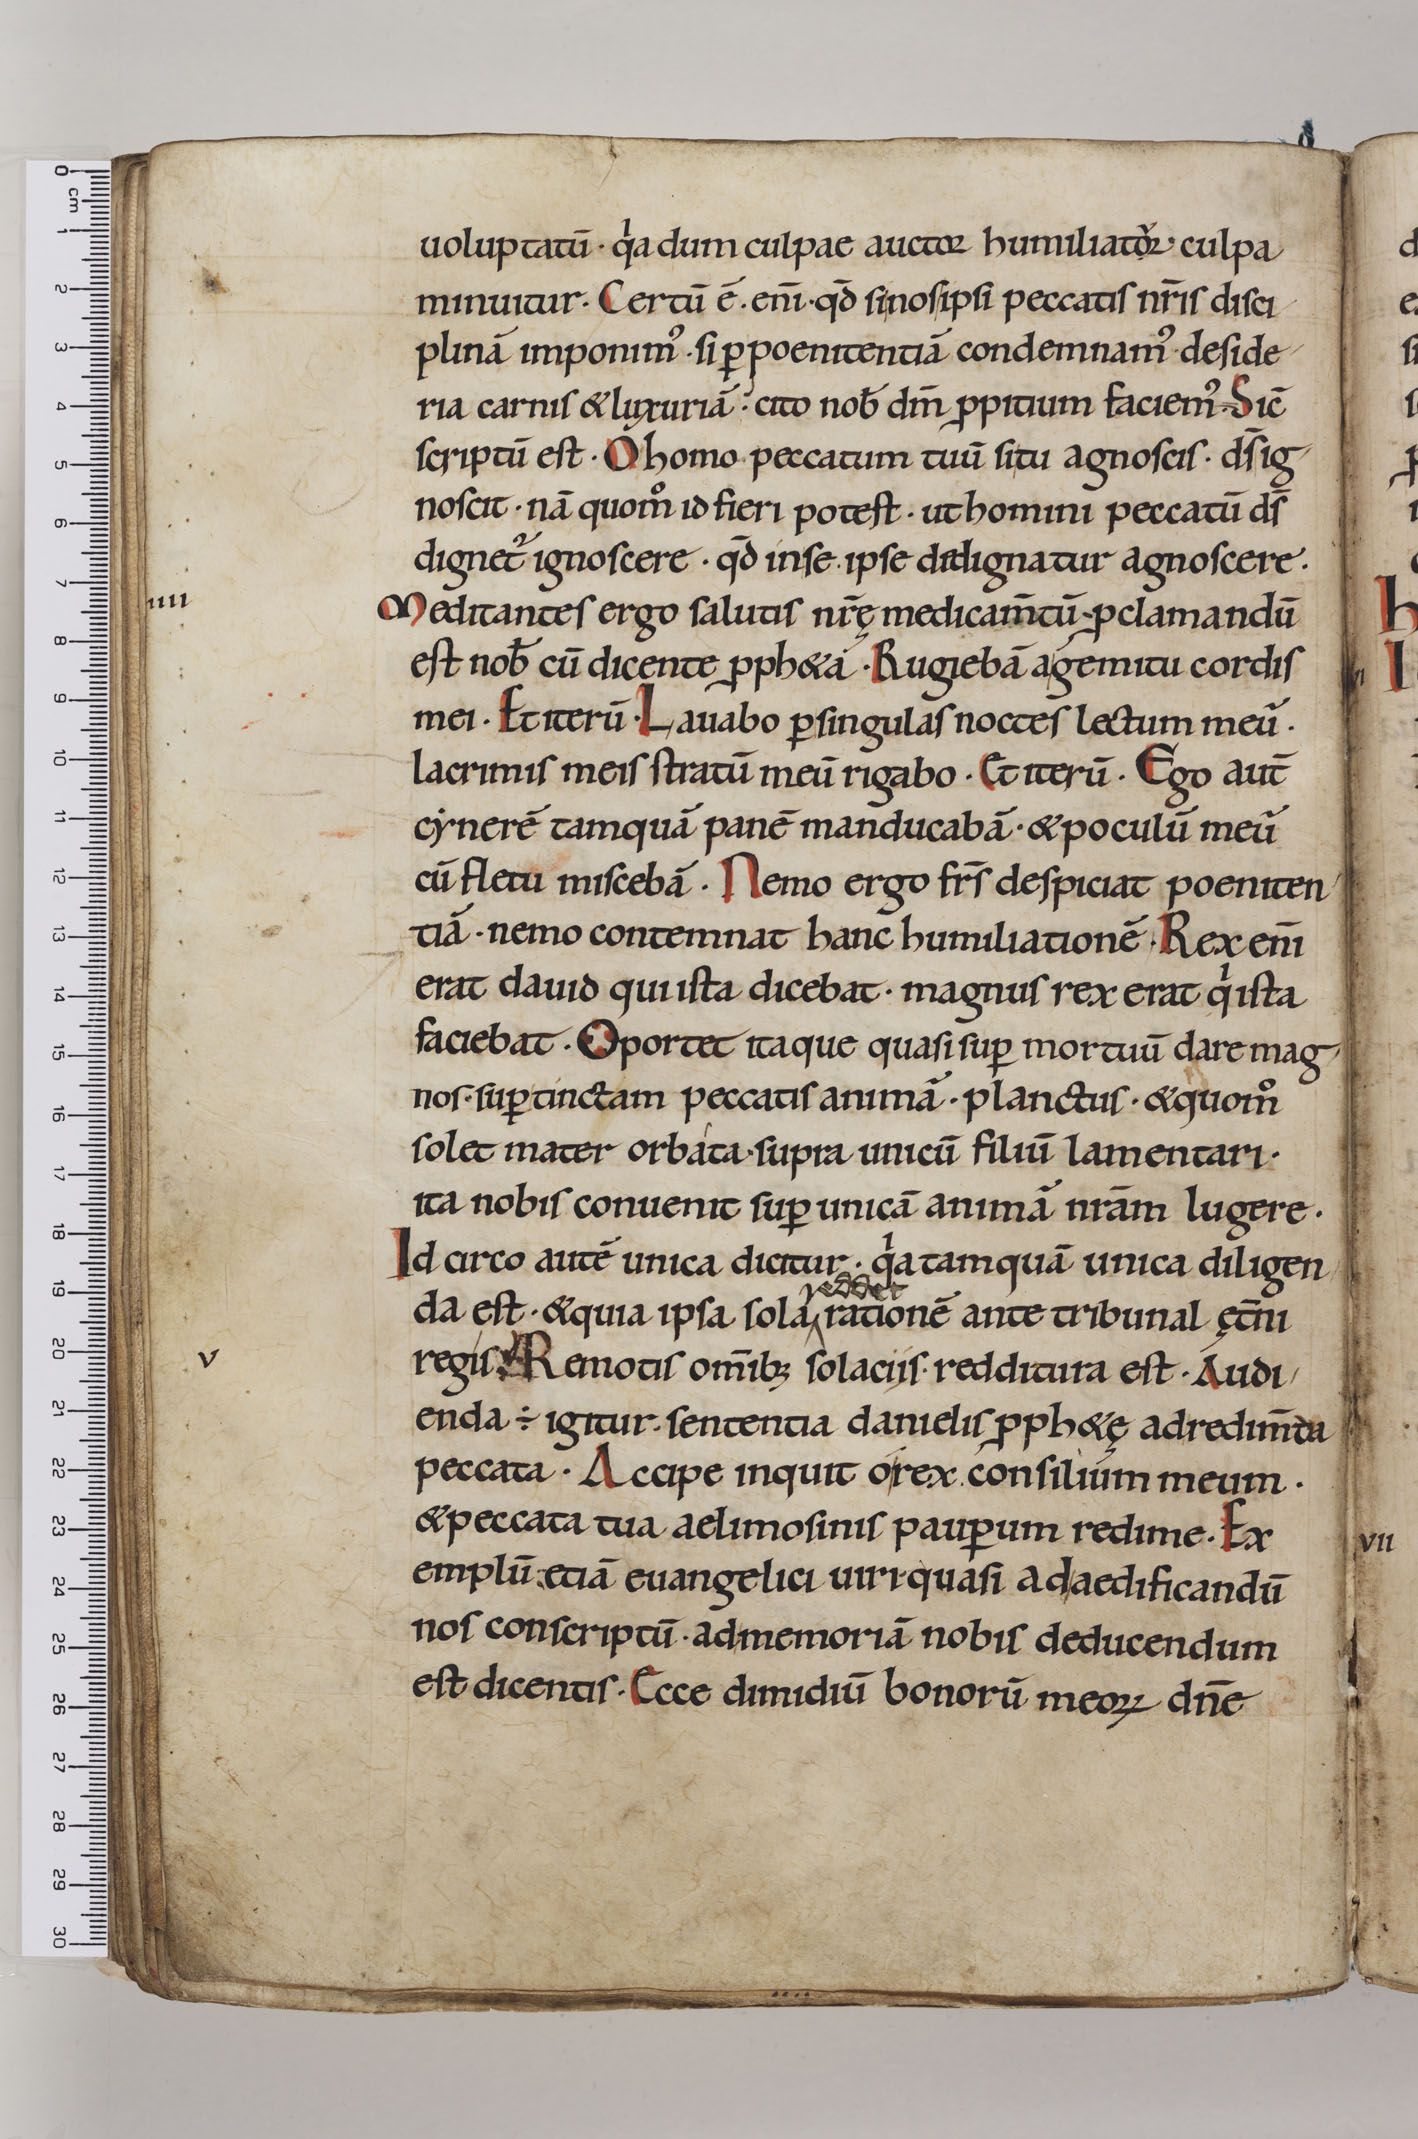 uoluptatū · qͥa dum culpae auctor humiliatoꝛ᷑ · culpa
minuitur · Certū ē · enī · qđ si nosipsi peccatis nr̄is disci
plinā imponimꝰ · si ꝑ poenitentiā condemnamꝰ · deside
ria carnis & luxuriā · cito nob̄ dm̄ ꝓpitium faciemꝰ · Sic̄
scriptū est · O homo peccatum tuū si tu agnoscis · ds̄ ig
noscit · nā quom̊ id fieri potest · ut homini peccatū ds̄
dignet᷑ ignoscere · qđ in se ipse dedignatur agnoscere ·
IIII
Meditantes ergo salutis nr̄ę medicam̄tū · ꝓclamandū
est nob̄ cū dicente ꝓph&a · Rugiebā a gemitu cordis
mei · Et iterū · Lauabo ꝑ singulas noctes lectum meū ·
lacrimis meis stratū meū rigabo · Et iterū · Ego aut̄
cynerē tamquā panē manducabā · & poculū meū
cū fletu miscebā · Nemo ergo fr̄s despiciat poeniten
tiā · nemo contemnat hanc humiliationē · Rex enī
erat dauid qui ista dicebat · magnus rex erat qͥ ista
faciebat · Oportet itaque quasi suꝑ mortuū dare mag
nos · suꝑ tinctam peccatis animā · planctus · & quom̊
solet mater orbata · supra unicū filiū lamentari ·
ita nobis conuenit suꝑ unicā animā nrām lugere ·
Id circo autē unica dicitur · qͥa tamquā unica diligen
reddet
da est · & quia ipsa sola rationē ante tribunal ęt̄ni
V
regis · Remotis om̄ibꝫ solaciis · redditura est · Audi
enda ÷ igitur · sententia danielis ꝓph&ę ad redim̄da
peccata · Accipe inquit o rex consilium meum ·
& peccata tua aelimosinis pauꝑum redime · Ex
emplū etiā euangelici uiri · quasi ad aedificandū
nos conscriptū · ad memoriā nobis deducendum
est dicentis · Ecce dimidiū bonorū meoꝝ dn̄e
VII